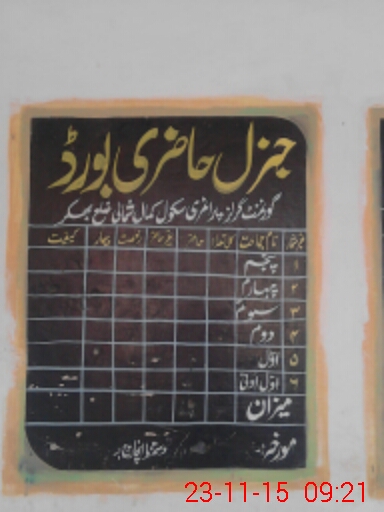 جنرل حاضری بورڈ
گورنمنٹ گرلز پرائمری سکول کمال شمالی ضلع بھکر
نمبرشمار نام جماعت کل تعداد حاضر غیر حاضر رخصت بیمار کیفیت
۱ پنجم
۲ چہارم
۳ سوئم
۴ دوم
۵ اوّل
۶ اوّل ادنیٰ
میزان
مورخہ:۔ دستخط انچارج
23-11-15 09:21